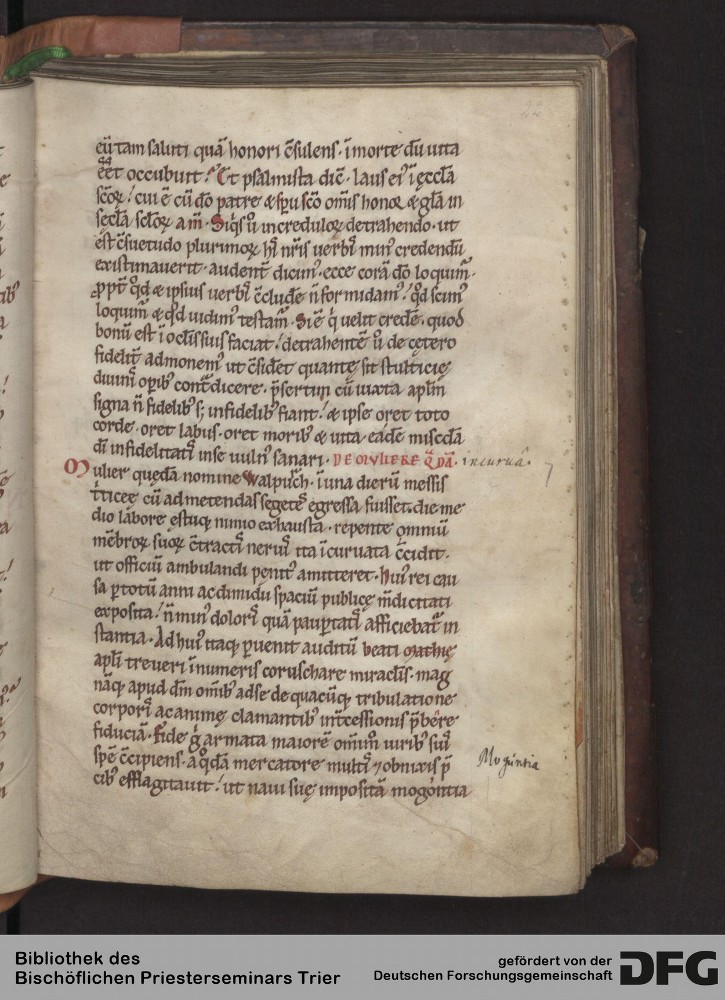 eū tam saluti quā honori c̄sulens· ī morte dū uita
eēt occubuit! Ut psalmista dic̄· laus ei᷒ ī ęccl̄a
sc̄oꝝ! cui ē cū dō patre & sp̄u sc̄o om̄is honor & gl̄a in
sęcl̄a scl̄oꝝ am̄· Siq̄s ů increduloꝝ detrahendo· ut
est c̄suetudo plurimoꝝ hı̄ nr̄is uerbı̄ min᷒ credendū
existimauerit· audent̄ dicim᷒· ecce corā dō loquim̄·
ꝓpt̄ qd̄ & ipsius uerbı̄ c̄clude n̄ formidam᷒! qd̄ scim᷒
loquim̄ & qd̄ uidim᷒ testam̄· Si ē q̇ uelit crede· quod
bonū est ī oc̄lis suis faciat! detrahente ů de cętero
fidelit̄ admonem᷒ ut c̄sidet quantę sit stulticię
diuinı̄ opib᷒ cont̄dicere· p̄sertim cū iuxta aplm̄
signa n̄ fidelib᷒ s; infidelib᷒ fiant! & ipse oret toto
corde· oret labiis· oret morib᷒ & uita· eadē misc̄dā
dı̄ infidelitatı̄ in se uuln᷒ sanari· DE MVLIERE Q̄DĀ· incuruā·
Mulier quędā nomine Walpurch· ī una dierū messis
t̄ticeę cū ad metendas segetes egressa fuisset· die me
dio labore ęstuq; nimio exhausta· repente omniū
mēbroꝝ suoꝝ c̄tractı̄ neruı̄ ita īcuruata c̄cidit·
ut officiū ambulandi penit᷒ amitteret· Hui᷒ rei cau
sa p totū anni ac dimidii spaciū publicę m̄dicitati
exposita! n̄ min᷒ dolorı̄ quā paup̄tatı̄ afficiebat̄ in
stantia· Ad hui᷒ itaq; puenit auditū beati Mathię
apl̄i treueri īnumeris coruschare miracl̄is· mag
nāq; apud dm̄ omı̄b᷒ ad se de quacūq; tribulatione
corporı̄ ac animę clamantib᷒ int̄cessionis p̄bere
fiduciā· Fide g̊ armata maiorē om̄ium uirib᷒ suı̄
spē c̄cipiens· a qdā mercatore multı̄ ⁊ obnixis p̄
cib᷒ efflagitauit! ut naui suę impositā mogontia
Moguntia
Bibliothek des
Bischöflichen Priesterseminars Trier
gefördert von der
Deutschen Forschungsgemeinschaft
DFG